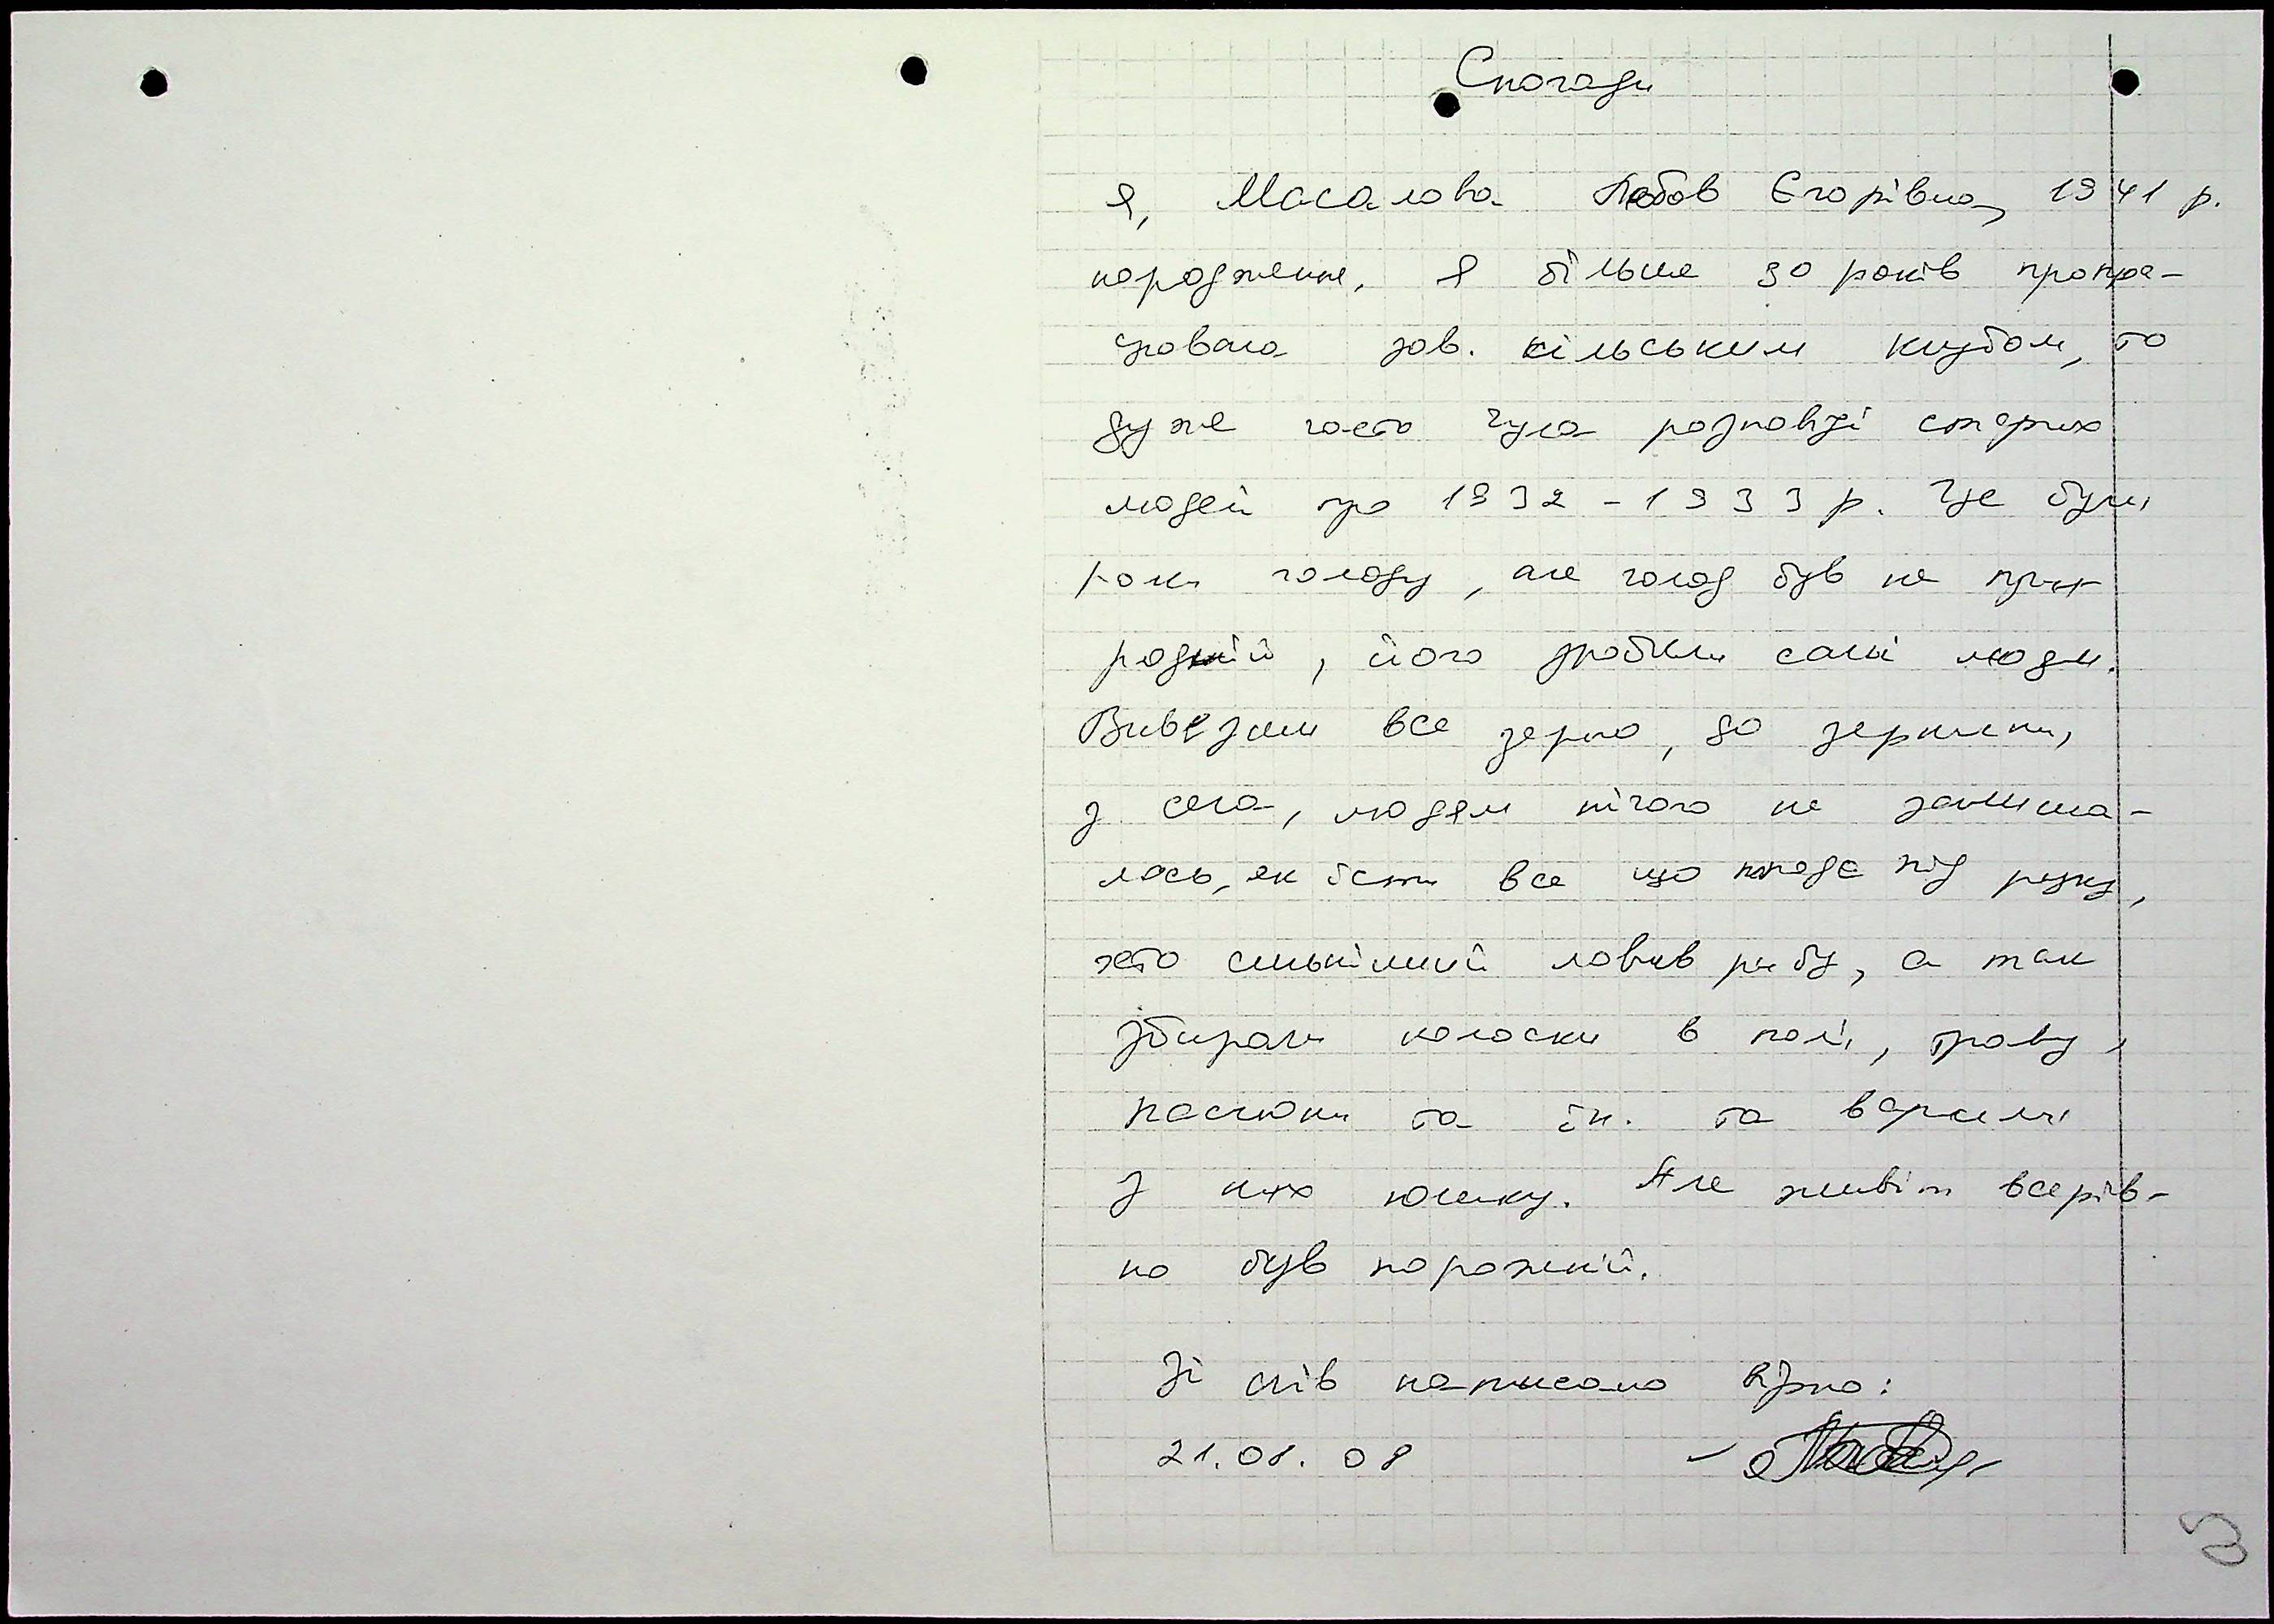 Спогади
Я, Масалова Любов Єгорівна, 1941 р.
народження. Я більше 30 років пропра-
цювала зав. сільським клубом, то
дуже часто чула розповіді старих
людей про 1932-1933 р. Це були
роки голоду, але голод був не при-
родній, його зробили самі люди.
Вивезли все зерно, до зернини,
з села, людям нічого не залиша-
лось, як їсти все що попаде під руку,
хто сильніший ловив рибу, а так
збирали колоски в полі, траву,
паслюни та ін. та варили
з них юшку. Але живіт всерів-
но був порожній.
Зі слів написано вірно:
21.01.08